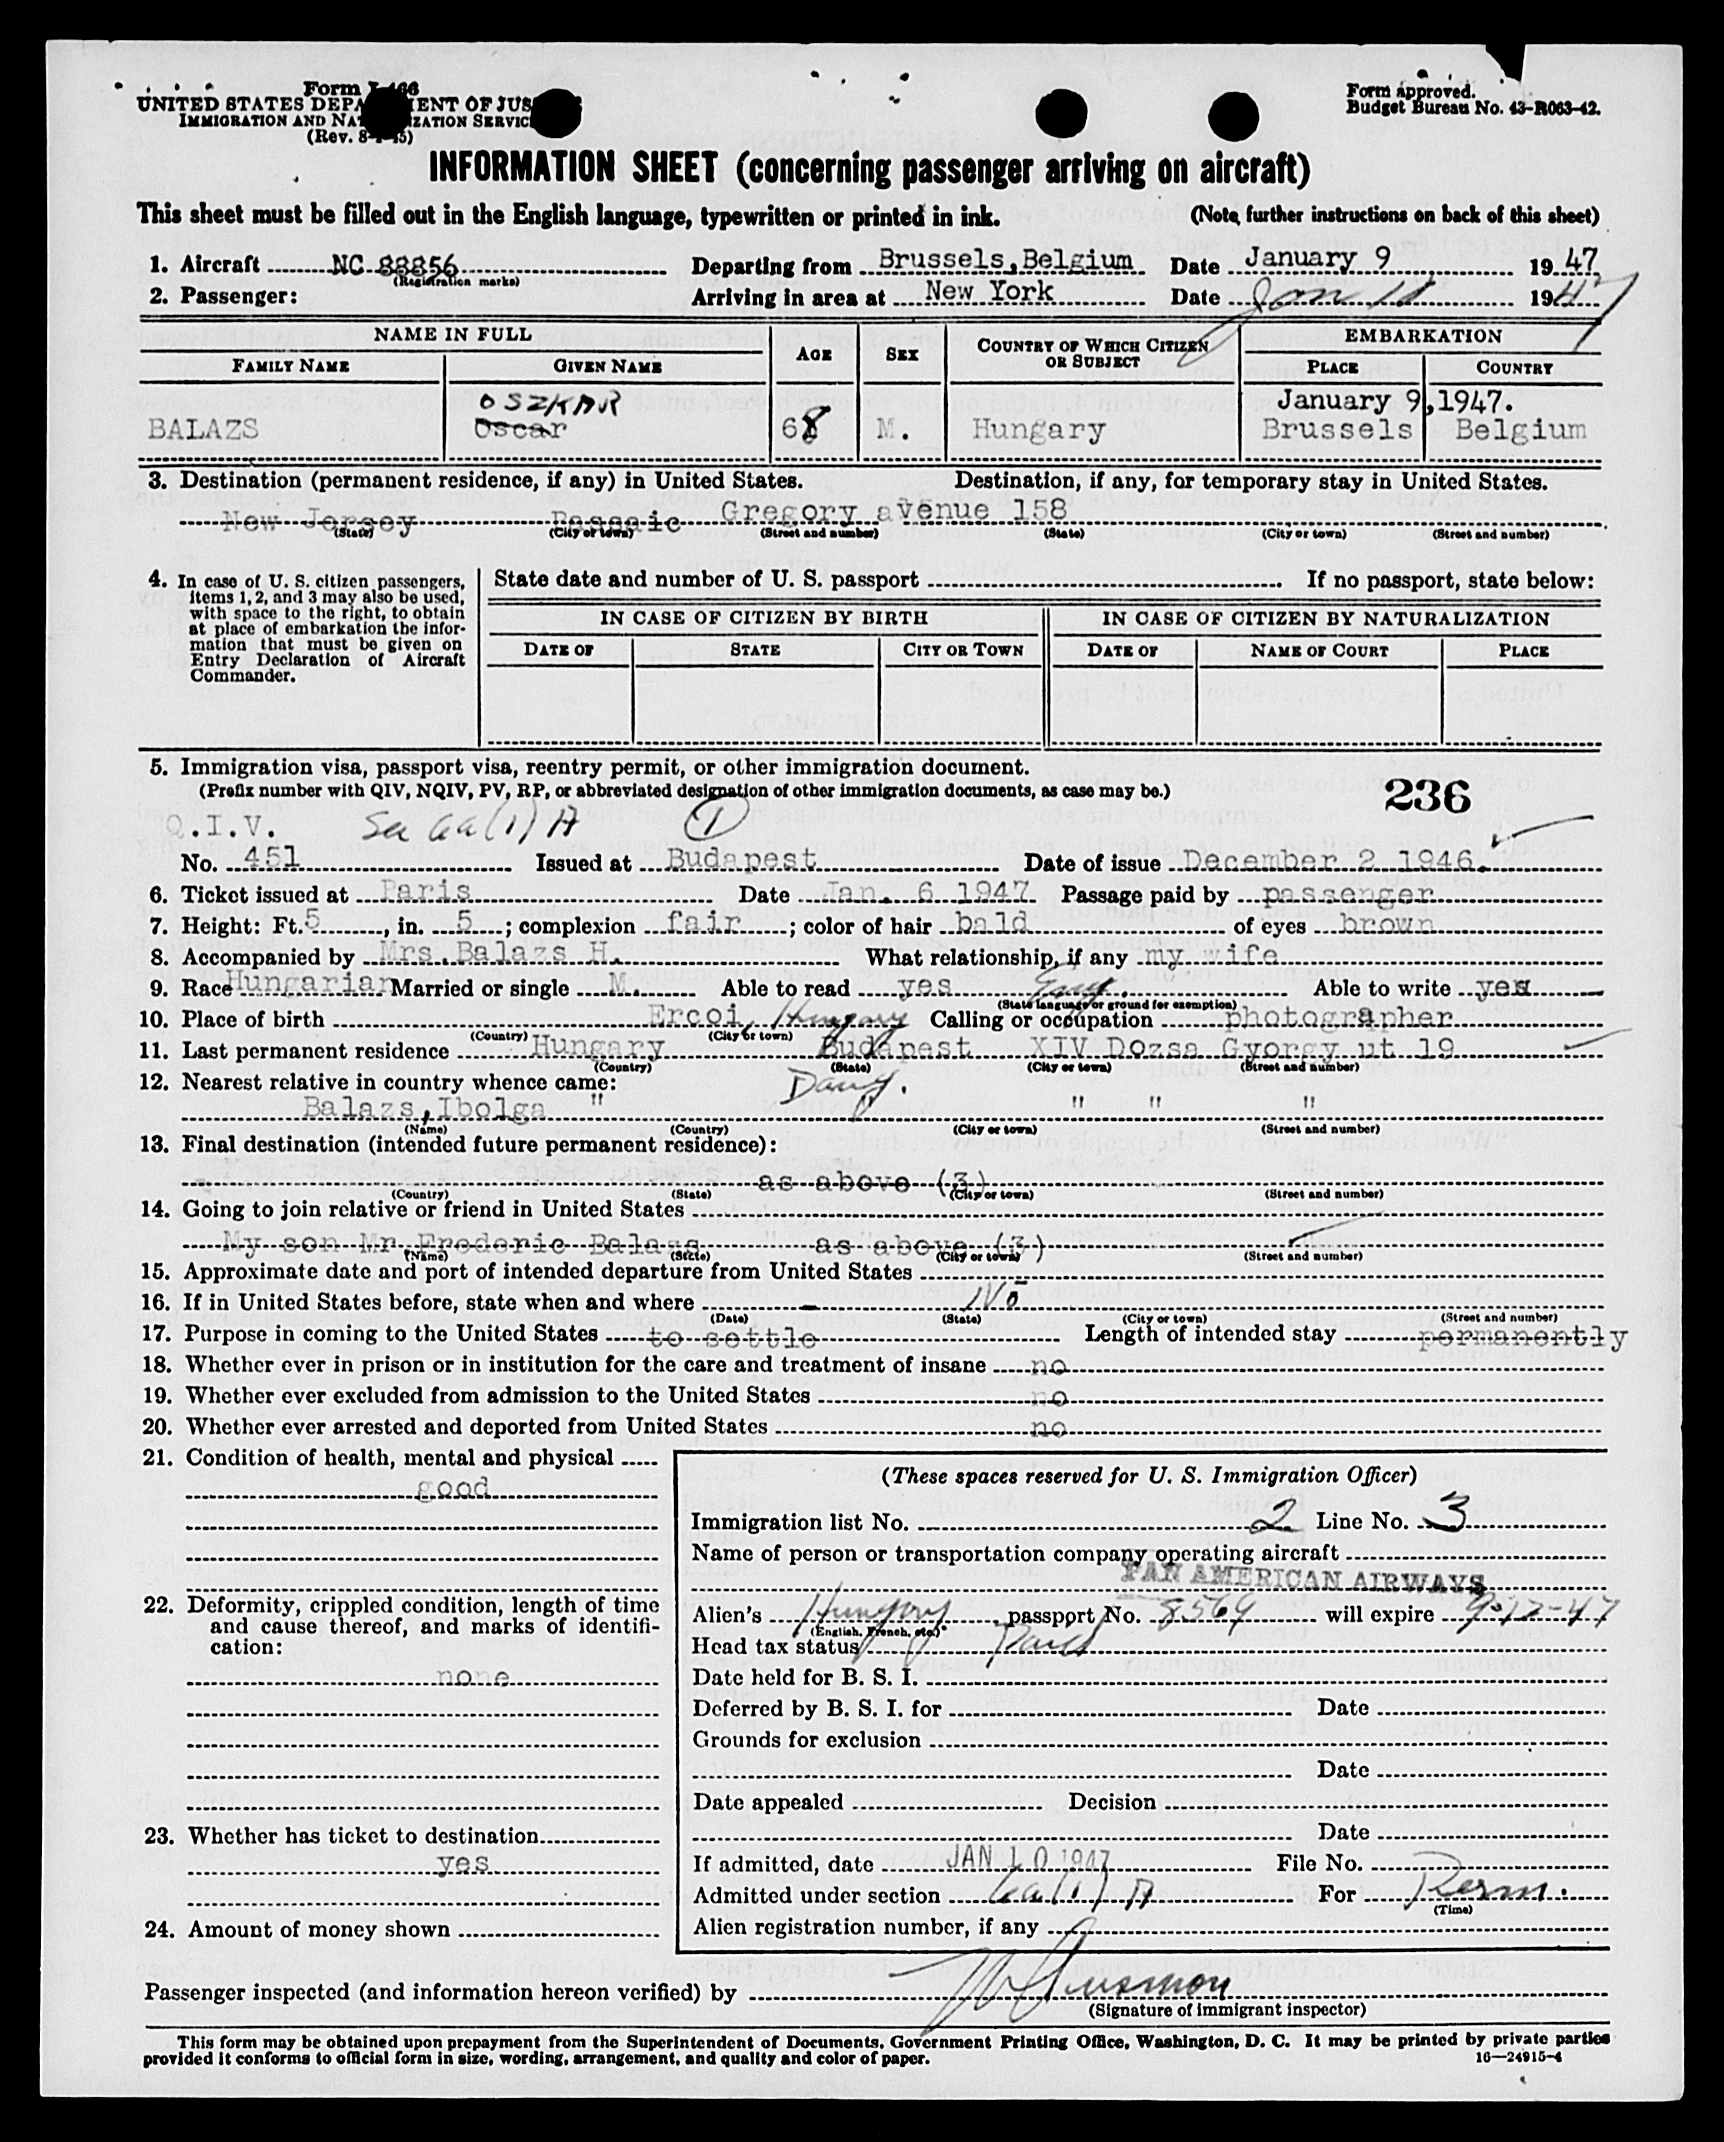 Form I-466
UNITED STATES DEPARTMENT OF JUSTICE
IMMIGRATION AND NATURALIZATION SERVICE
(Rev. 8-1-45)
Form approved.
Budget Bureau No. 43-R063-42.
INFORMATION SHEET (concerning passenger arriving on aircraft)
This sheet must be filled out in the English language, typewritten or printed in ink. (Note further instructions on back of this sheet)
1. Aircraft NC 88856 Departing from Brussels, Belgium Date January 9 1947
(Registration marks)
2. Passenger: Arriving in area at New York Date Jan 1947
NAME IN FULL AGE SEX COUNTRY OF WHICH CITIZEN OR SUBJECT EMBARKATION
FAMILY NAME GIVEN NAME PLACE COUNTRY
OSZKAR January 9,1947.
BALAZS Oscar 68 M. Hungary Brussels Belgium
3. Destination (permanent residence, if any) in United States. Destination, if any, for temporary stay in United States.
New Jersey Passaic Gregory avenue 158
(State) (City or town) (Street and number) (State) (City or town) (Street and number)
4. In case of U. S. citizen passengers, items 1, 2, and 3 may also be used, with space to the right, to obtain at place of embarkation the information that must be given on Entry Declaration of Aircraft Commander.
State date and number of U. S. passport If no passport, state below:
IN CASE OF CITIZEN BY BIRTH IN CASE OF CITIZEN BY NATURALIZATION
DATE OF STATE CITY OR TOWN DATE OF NAME OF COURT PLACE
5. Immigration visa, passport visa, reentry permit, or other immigration document.
(Prefix number with QIV, NQIV, PV, RP, or abbreviated designation of other immigration documents, as case may be.)
236
Q.I.V. Sec 6a(1) A 1
No. 451 Issued at Budapest Date of issue December 2 1946.
6. Ticket issued at Paris Date Jan. 6 1947 Passage paid by passenger
7. Height: Ft. 5, in. 5; complexion fair; color of hair bald of eyes brown
8. Accompanied by Mrs. Balazs H. What relationship, if any my wife
9. Race Hungarian Married or single M. Able to read yes Eng. Able to write yes
(State language or ground for exemption)
10. Place of birth Ercoi, Hungary Calling or occupation photographer
(Country) (City or town)
11. Last permanent residence Hungary Budapest XIV Dozsa Gyorgy ut 19
(Country) (State) (City or town) (Street and number)
12. Nearest relative in country whence came: Daug.
Balazs, Ibolga " " " " "
(Name) (Country) (City or town) (Street and number)
13. Final destination (intended future permanent residence):
as above (3)
(Country) (State) (City or town) (Street and number)
14. Going to join relative or friend in United States
My son Mr Frederic Balazs as above (3)
(Name) (State) (City or town) (Street and number)
15. Approximate date and port of intended departure from United States
16. If in United States before, state when and where - No
(Date) (State) (City or town) (Street and number)
17. Purpose in coming to the United States to settle Length of intended stay permanently
18. Whether ever in prison or in institution for the care and treatment of insane no
19. Whether ever excluded from admission to the United States no
20. Whether ever arrested and deported from United States no
21. Condition of health, mental and physical
good
22. Deformity, crippled condition, length of time and cause thereof, and marks of identification:
none
23. Whether has ticket to destination
yes
24. Amount of money shown
(These spaces reserved for U. S. Immigration Officer)
Immigration list No. 2 Line No. 3
Name of person or transportation company operating aircraft
PAN AMERICAN AIRWAYS
Alien's Hungary passport No. 8569 will expire 9-12-47
(English, French, etc.)
Head tax status Paid
Date held for B. S. I.
Deferred by B. S. I. for Date
Grounds for exclusion
Date
Date appealed Decision
Date
If admitted, date JAN 10 1947 File No.
Admitted under section 6a(1) A For Perm.
(Time)
Alien registration number, if any
Passenger inspected (and information hereon verified) by
(Signature of immigrant inspector)
This form may be obtained upon prepayment from the Superintendent of Documents, Government Printing Office, Washington, D. C. It may be printed by private parties
provided it conforms to official form in size, wording, arrangement, and quality and color of paper. 16—24915-4